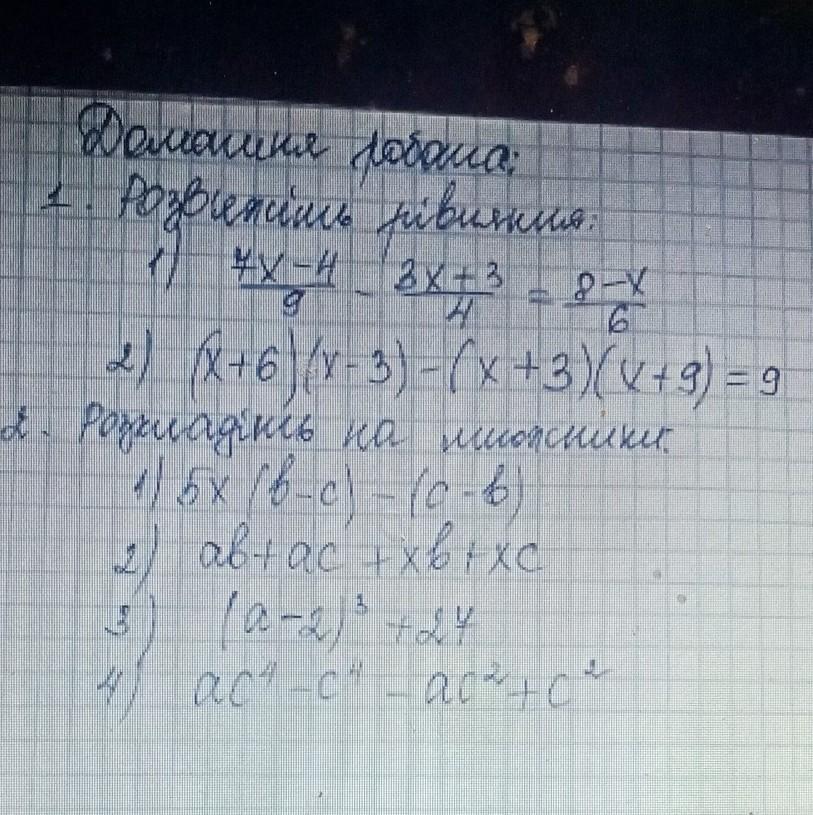 Домашня робота:
1. Розв'яжіть рівняння:
1) (7x-4)/9 - (3x+3)/4 = (8-x)/6
2) (x+6)(x-3)-(x+3)(x+9)=9
2. Розкладіть на множники:
1) 5x(b-c)-(c-b)
2) ab+ac+xb+xc
3) (a-2)³+27
4) ac⁴-c⁴-ac²+c²